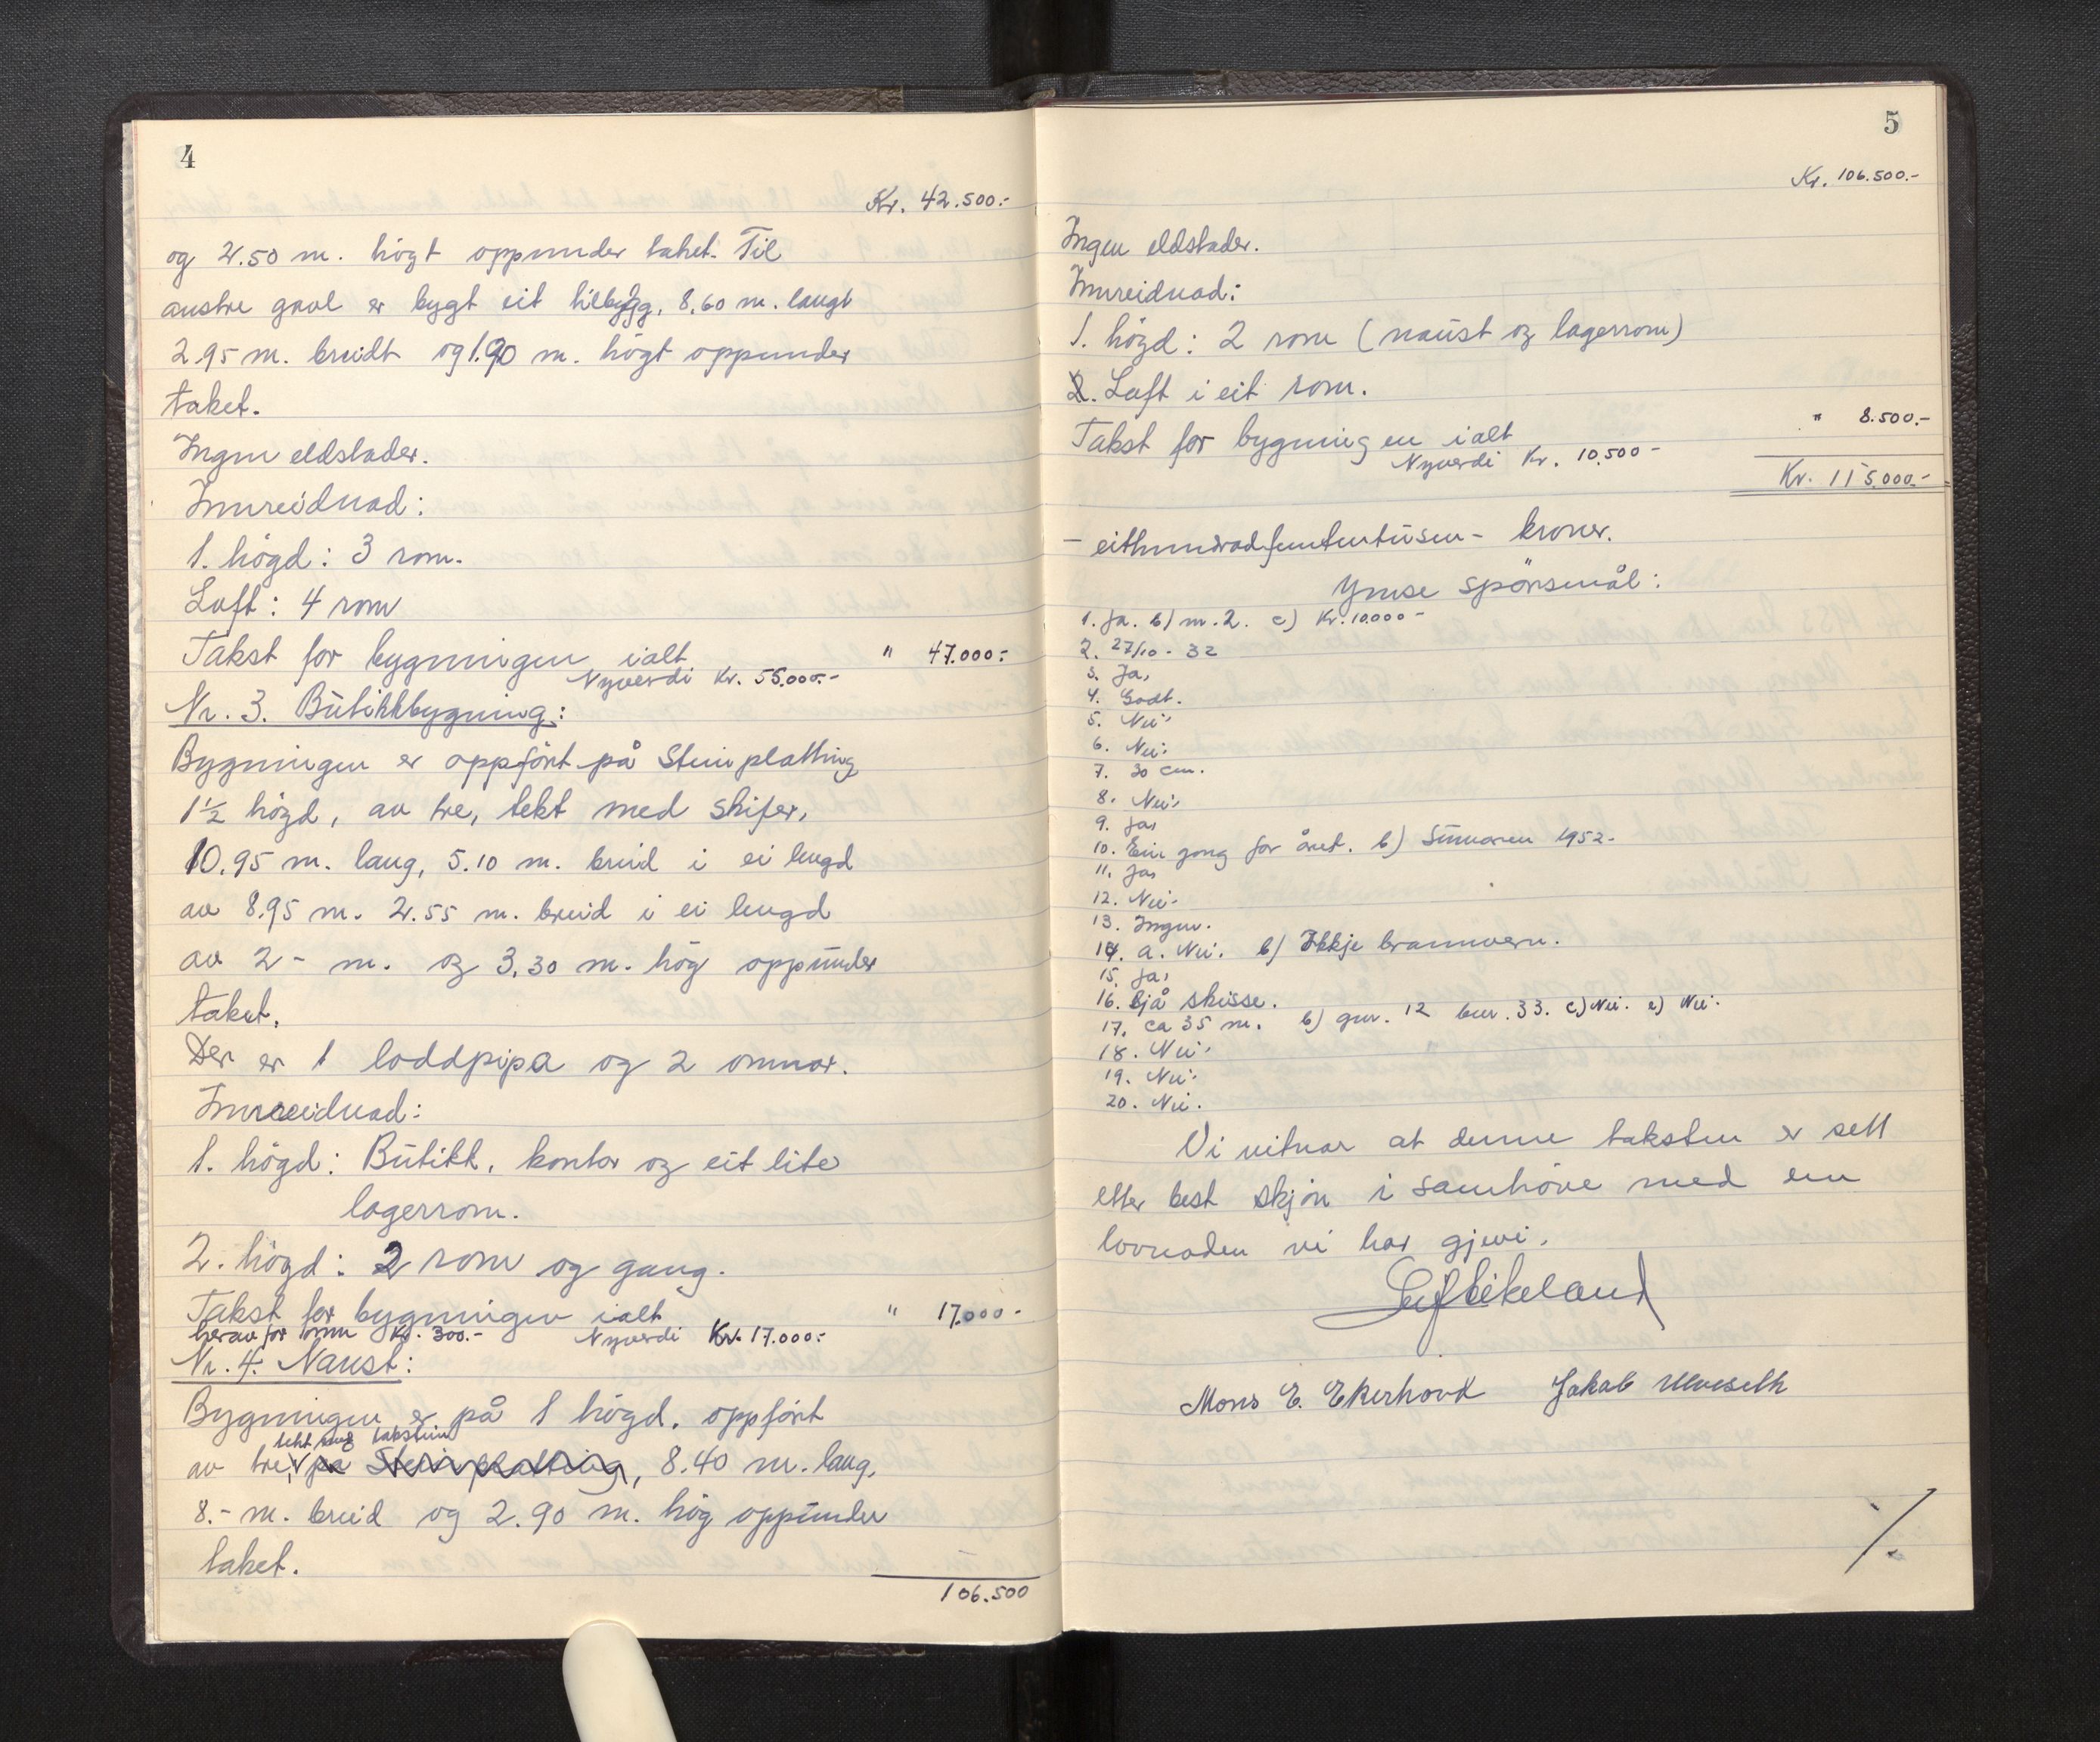 4
Kr. 42.500.-
og 2.50 m. högt oppunder taket. Til
austre gavl er bygt eit tilbygg, 8,60 m. langt
2.95 m. breidt og 1.90 m. högt oppunder
taket.
Ingen eldstader.
Innreidnad:
1. högd: 3 rom.
Loft: 4 rom
Takst for bygningen ialt " 47.000:-
Nyverdi Kr. 55.000.-
Nr. 3. Butikkbygning:
Bygningen er oppfört på Steinplatting
1½ högd, av tre, tekt med skifer,
10.95 m. lang, 5.10 m. breid i ei lengd
av 8.95 m. 2.55 m. breid i ei lengd
av 2 - m. og 3,30 m. hög oppunder
taket.
Der er 1 loddpipa og 2 omnar.
Innreidnad:
1. högd: Butikk, kontor og eit lite
lagerrom.
2. högd: 2 rom og gang.
Takst for bygningen ialt " 17.000-
herav for omn Kr. 300.- Nyverdi Kr. 17.000:-
Nr. 4. Naust:
Bygningen er på 1 högd, oppfört
tekt med takstein
av tre, på Steinplatting, 8.40 m. lang,
8.- m. breid og 2.90 m. hög oppunder
taket.
106.500
5
Kr. 106.500.-
Ingen eldstader.
Innreidnad:
1. högd: 2 rom (naust og lagerrom)
2. Loft i eit rom.
Takst for bygningen ialt " 8.500.-
Nyverdi Kr. 10.500-
Kr. 115.000.-
- eithundradfemtentusen - kroner.
Ymse spörsmål:
1. Ja. b) m. 2. c) Kr. 10.000-
2. 27/10 - 32
3. Ja.
4. Godt.
5. Nei.
6. Nei.
7. 30 cm.
8. Nei.
9. Ja.
10. Ein gong for året. b) Sumaren 1952.
11. Ja.
12. Nei.
13. Ingen.
14. a. Nei. b) Ikkje brannvern.
15. Ja.
16. Sjå skisse.
17. ca 35 m. b) gnr. 12 bnr. 33. c) Nei. e) Nei.
18. Nei.
19. Nei.
20. Nei.
Vi vitnar at denne taksten er sett
etter best skjön i samhöve med en
lovnaden vi har gjevi.
Leif Eikeland
Mons E. Ekerhovd Jakob Ulveseth
./.